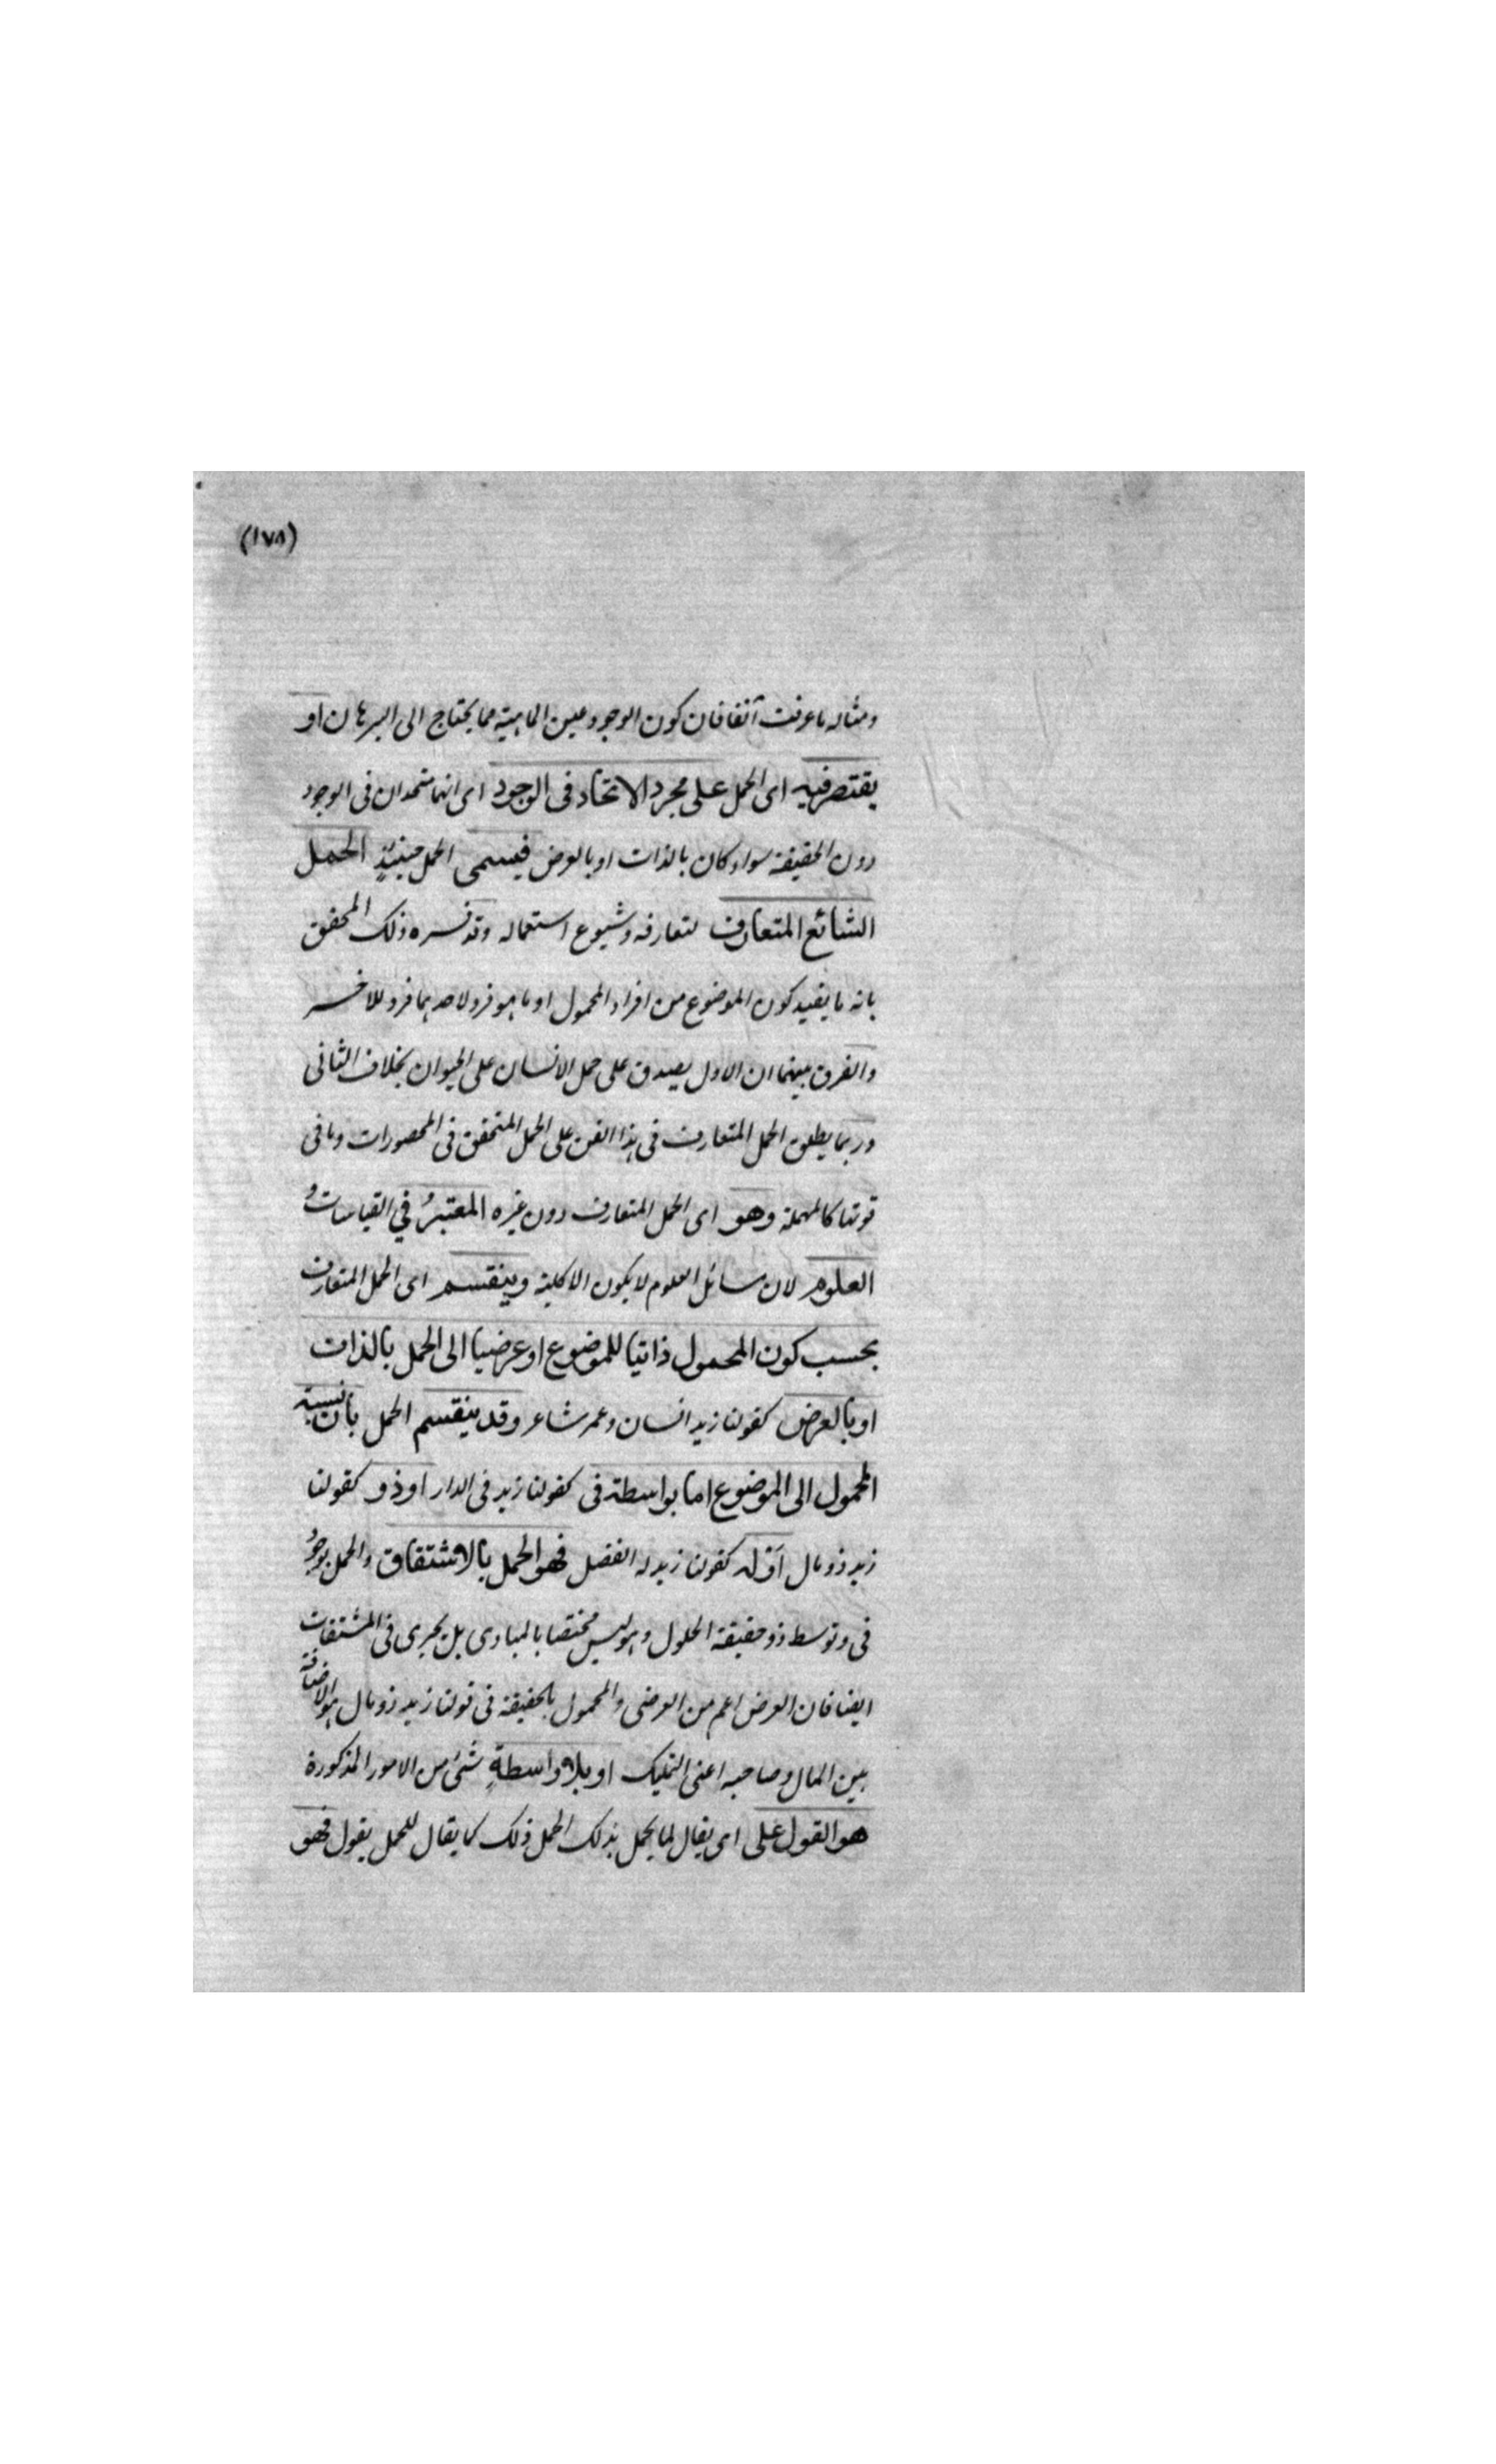 (١٧٨)
ومثاله ما عرفت آنفا فان كون الوجود عين الماهية مما يحتاج الى البرهان او
يقتصر فيه اى الحمل على مجرد الاتحاد فى الوجود اى انهما متحدان فى الوجود
دون الحقيقة سواء كان بالذات او بالعرض فيسمى الحمل حينئذٍ الحمل
الشائع المتعارف لتعارفه وشيوع استعماله وقد فسره ذلك المحقق
بانه ما يفيد كون الموضوع من افراد المحمول او ما هو فرد لاحدهما فرد للاخر
والفرق بينهما ان الاول يصدق على حمل الانسان على الحيوان بخلاف الثانى
وربما يطلق الحمل المتعارف فى هذا الفن على الحمل المتحقق فى المحصورات وما فى
قوتها كالمهملة وهو اى الحمل المتعارف دون غيره المعتبرُ في القياسات و
العلوم لان مسائل العلوم لا يكون الا كلية وينقسم اى الحمل المتعارف
بحسب كون المحمول ذاتيا للموضوع او عرضيا الى الحمل بالذات
او بالعرض كقولنا زيد انسان وعمر شاعر وقد ينقسم الحمل بان نسبة
المحمول الى الموضوع اما بواسطة فى كقولنا زيد فى الدار او ذو كقولنا
زيد ذو مال اَوْ له كقولنا زيد له الفضل فهو الحمل بالاشتقاق والحمل بوجود
فى وتوسط ذو حقيقة الحلول وهو ليس مختصا بالمبادى بل يجرى فى المشتقات
ايضا فان العرض اعم من العرضى والمحمول بالحقيقة فى قولنا زيد ذو مال هو الاضافة
بين المال وصاحبه اعنى التمليك او بلا واسطةِ شئ من الامور المذكورة
هو القول على اى يقال لما يحمل بذلك الحمل ذلك كما يقال للحمل يقول فهو